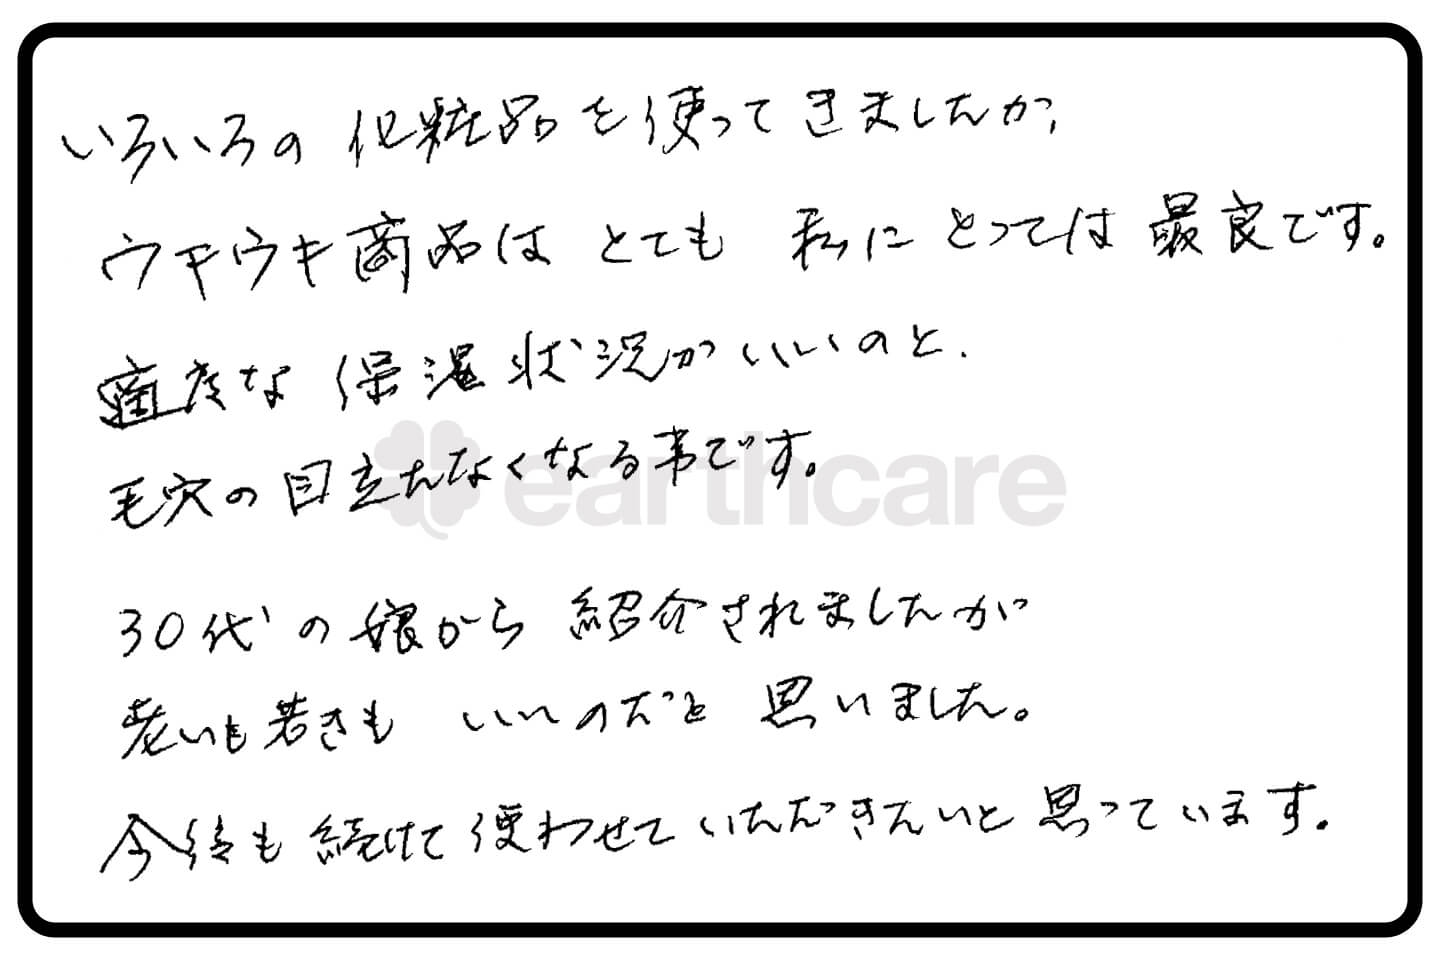 いろいろの 化粧品を使ってきましたが、
ウキウキ商品は とても 私に とっては 最良です。
適度な 保湿状況がいいのと、
毛穴の目立たなくなる事です。
earthcare
30代の娘から 紹介されましたが
老いも若きも いいのだと 思いました。
今後も続けて使わせていただきたいと思っています。